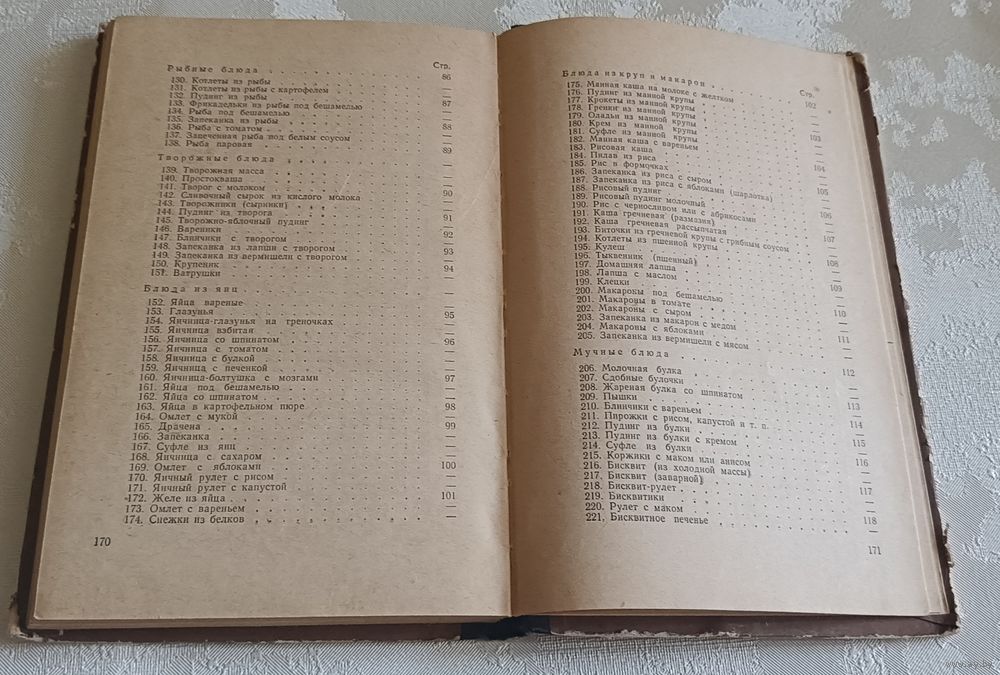 Стр.
Рыбные блюда 86
130. Котлеты из рыбы —
131. Котлеты из рыбы с картофелем —
132. Пудинг из рыбы 87
133. Фрикадельки из рыбы под бешамелью —
134. Рыба под бешамелью —
135. Запеканка из рыбы 88
136. Рыба с томатом —
137. Запеченная рыба под белым соусом —
138. Рыба паровая 89
Творожные блюда —
139. Творожная масса —
140. Простокваша —
141. Творог с молоком 90
142. Сливочный сырок из кислого молока —
143. Творожники (сырники) —
144. Пудинг из творога 91
145. Творожно-яблочный пудинг —
146. Вареники 92
147. Блинчики с творогом —
148. Запеканка из лапши с творогом 93
149. Запеканка из вермишели с творогом —
150. Крупеник 94
151. Ватрушки —
Блюда из яиц —
152. Яйца вареные —
153. Глазунья 95
154. Яичница-глазунья на треночках —
155. Яичница взбитая —
156. Яичница со шпинатом 96
157. Яичница с томатом —
158. Яичница с булкой —
159. Яичница с печенкой —
160. Яичница-болтушка с мозгами 97
161. Яйца под бешамелью —
162. Яйца со шпинатом —
163. Яйца в картофельном пюре 98
164. Омлет с мукой —
165. Драчена 99
166. Запеканка —
167. Суфле из яиц —
168. Яичница с сахаром —
169. Омлет с яблоками 100
170. Яичный рулет с рисом —
171. Яичный рулет с капустой —
172. Желе из яйца 101
173. Омлет с вареньем —
174. Снежки из белков —
170
Стр.
Блюда из круп и макарон 102
175. Манная каша на молоке с желтком —
176. Пудинг из манной крупы —
177. Крокеты из манной крупы —
178. Гренки из манной крупы 103
179. Оладьи из манной крупы —
180. Крем из манной крупы —
181. Суфле из манной крупы 104
182. Манная каша с вареньем —
183. Рисовая каша —
184. Пилав из риса 105
185. Рис в формочках —
186. Запеканка из риса с сыром —
187. Запеканка из риса с яблоками (шарлотка) 106
188. Рисовый пудинг —
189. Рисовый пудинг молочный —
190. Рис с черносливом или с абрикосами 107
191. Каша гречневая (размазня) —
192. Каша гречневая рассыпчатая —
193. Биточки из гречневой крупы с грибным соусом 108
194. Котлеты из пшенной крупы —
195. Кулеш —
196. Тыквенник (пшенный) 109
197. Домашняя лапша —
198. Лапша с маслом —
199. Клецки —
200. Макароны под бешамелью 110
201. Макароны в томате —
202. Макароны с сыром —
203. Запеканка из макарон с медом 111
204. Макароны с яблоками —
205. Запеканка из вермишели с мясом —
Мучные блюда 112
206. Молочная булка —
207. Сдобные булочки —
208. Жареная булка со шпинатом 113
209. Пышки —
210. Блинчики с вареньем 114
211. Пирожки с рисом, капустой и т. п. —
212. Пудинг из булки 115
213. Пудинг из булки с кремом —
214. Суфле из булки 116
215. Коржики с маком или анисом —
216. Бисквит (из холодной массы) —
217. Бисквит (заварной) 117
218. Бисквит-рулет —
219. Бисквитики —
220. Рулет с маком 118
221. Бисквитное печенье —
171